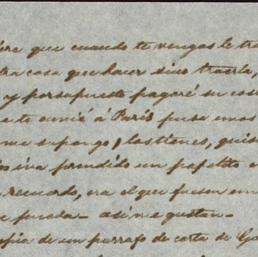 que cuando te vengas le
otra cosa que hacer sino traerla,
y por supuesto pagaré su
te envié á Paris puse unos
me supongo, las tienes,
prendido un papelito
recuerdo, era el que fuesen
pueda - asi me gustan -
copia de un parrafo de carta de